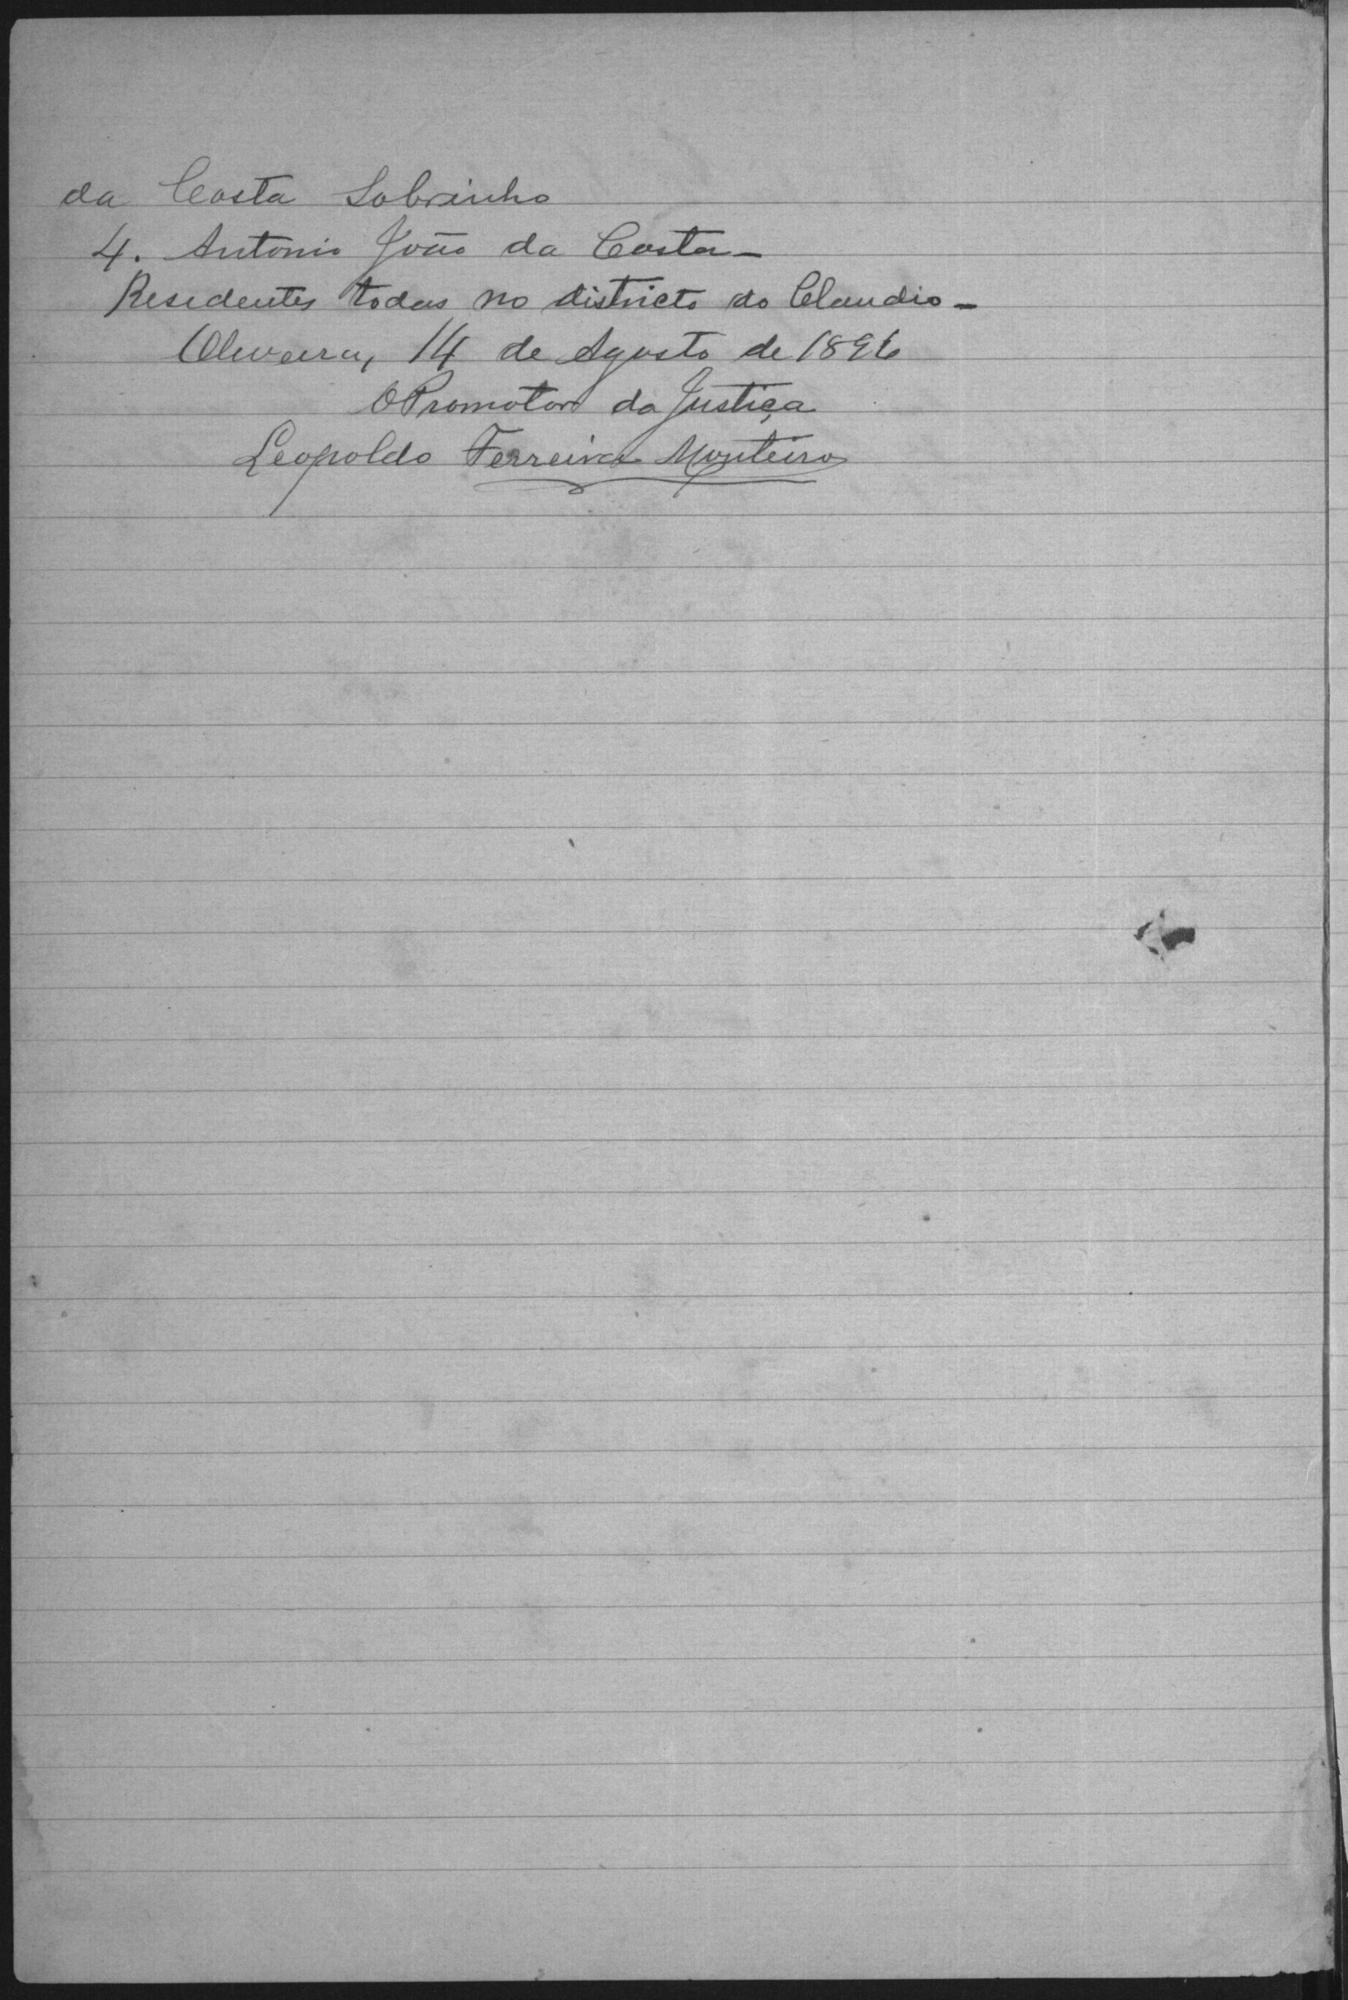 da Costa Sobrinho
4. Antonio João da Costa –
Residentes todas no districto do Claudio –
Oliveira, 14 de Agosto de 1896
O Promotor da Justiça
Leopoldo Ferreira Monteiro